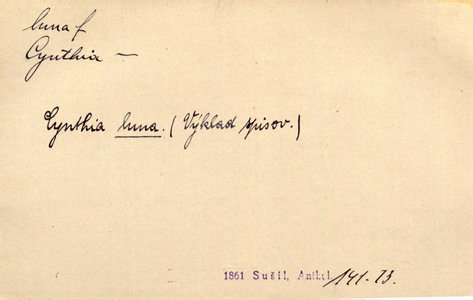 luna f
Cynthia —
Cynthia luna. (Výklad spisov.)
1861 Sušil, Anthol. 141-73.